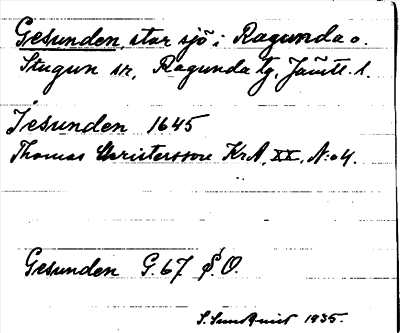 Gesunden, stor sjö i Ragunda o.
Stugun sn, Ragunda tg, Jämtl. l.
Jesunden 1645
Thomas Christersson KrA, XX, N:o 4.
Gesunden G. 67 S. Ö.
S. Sundquist 1935.